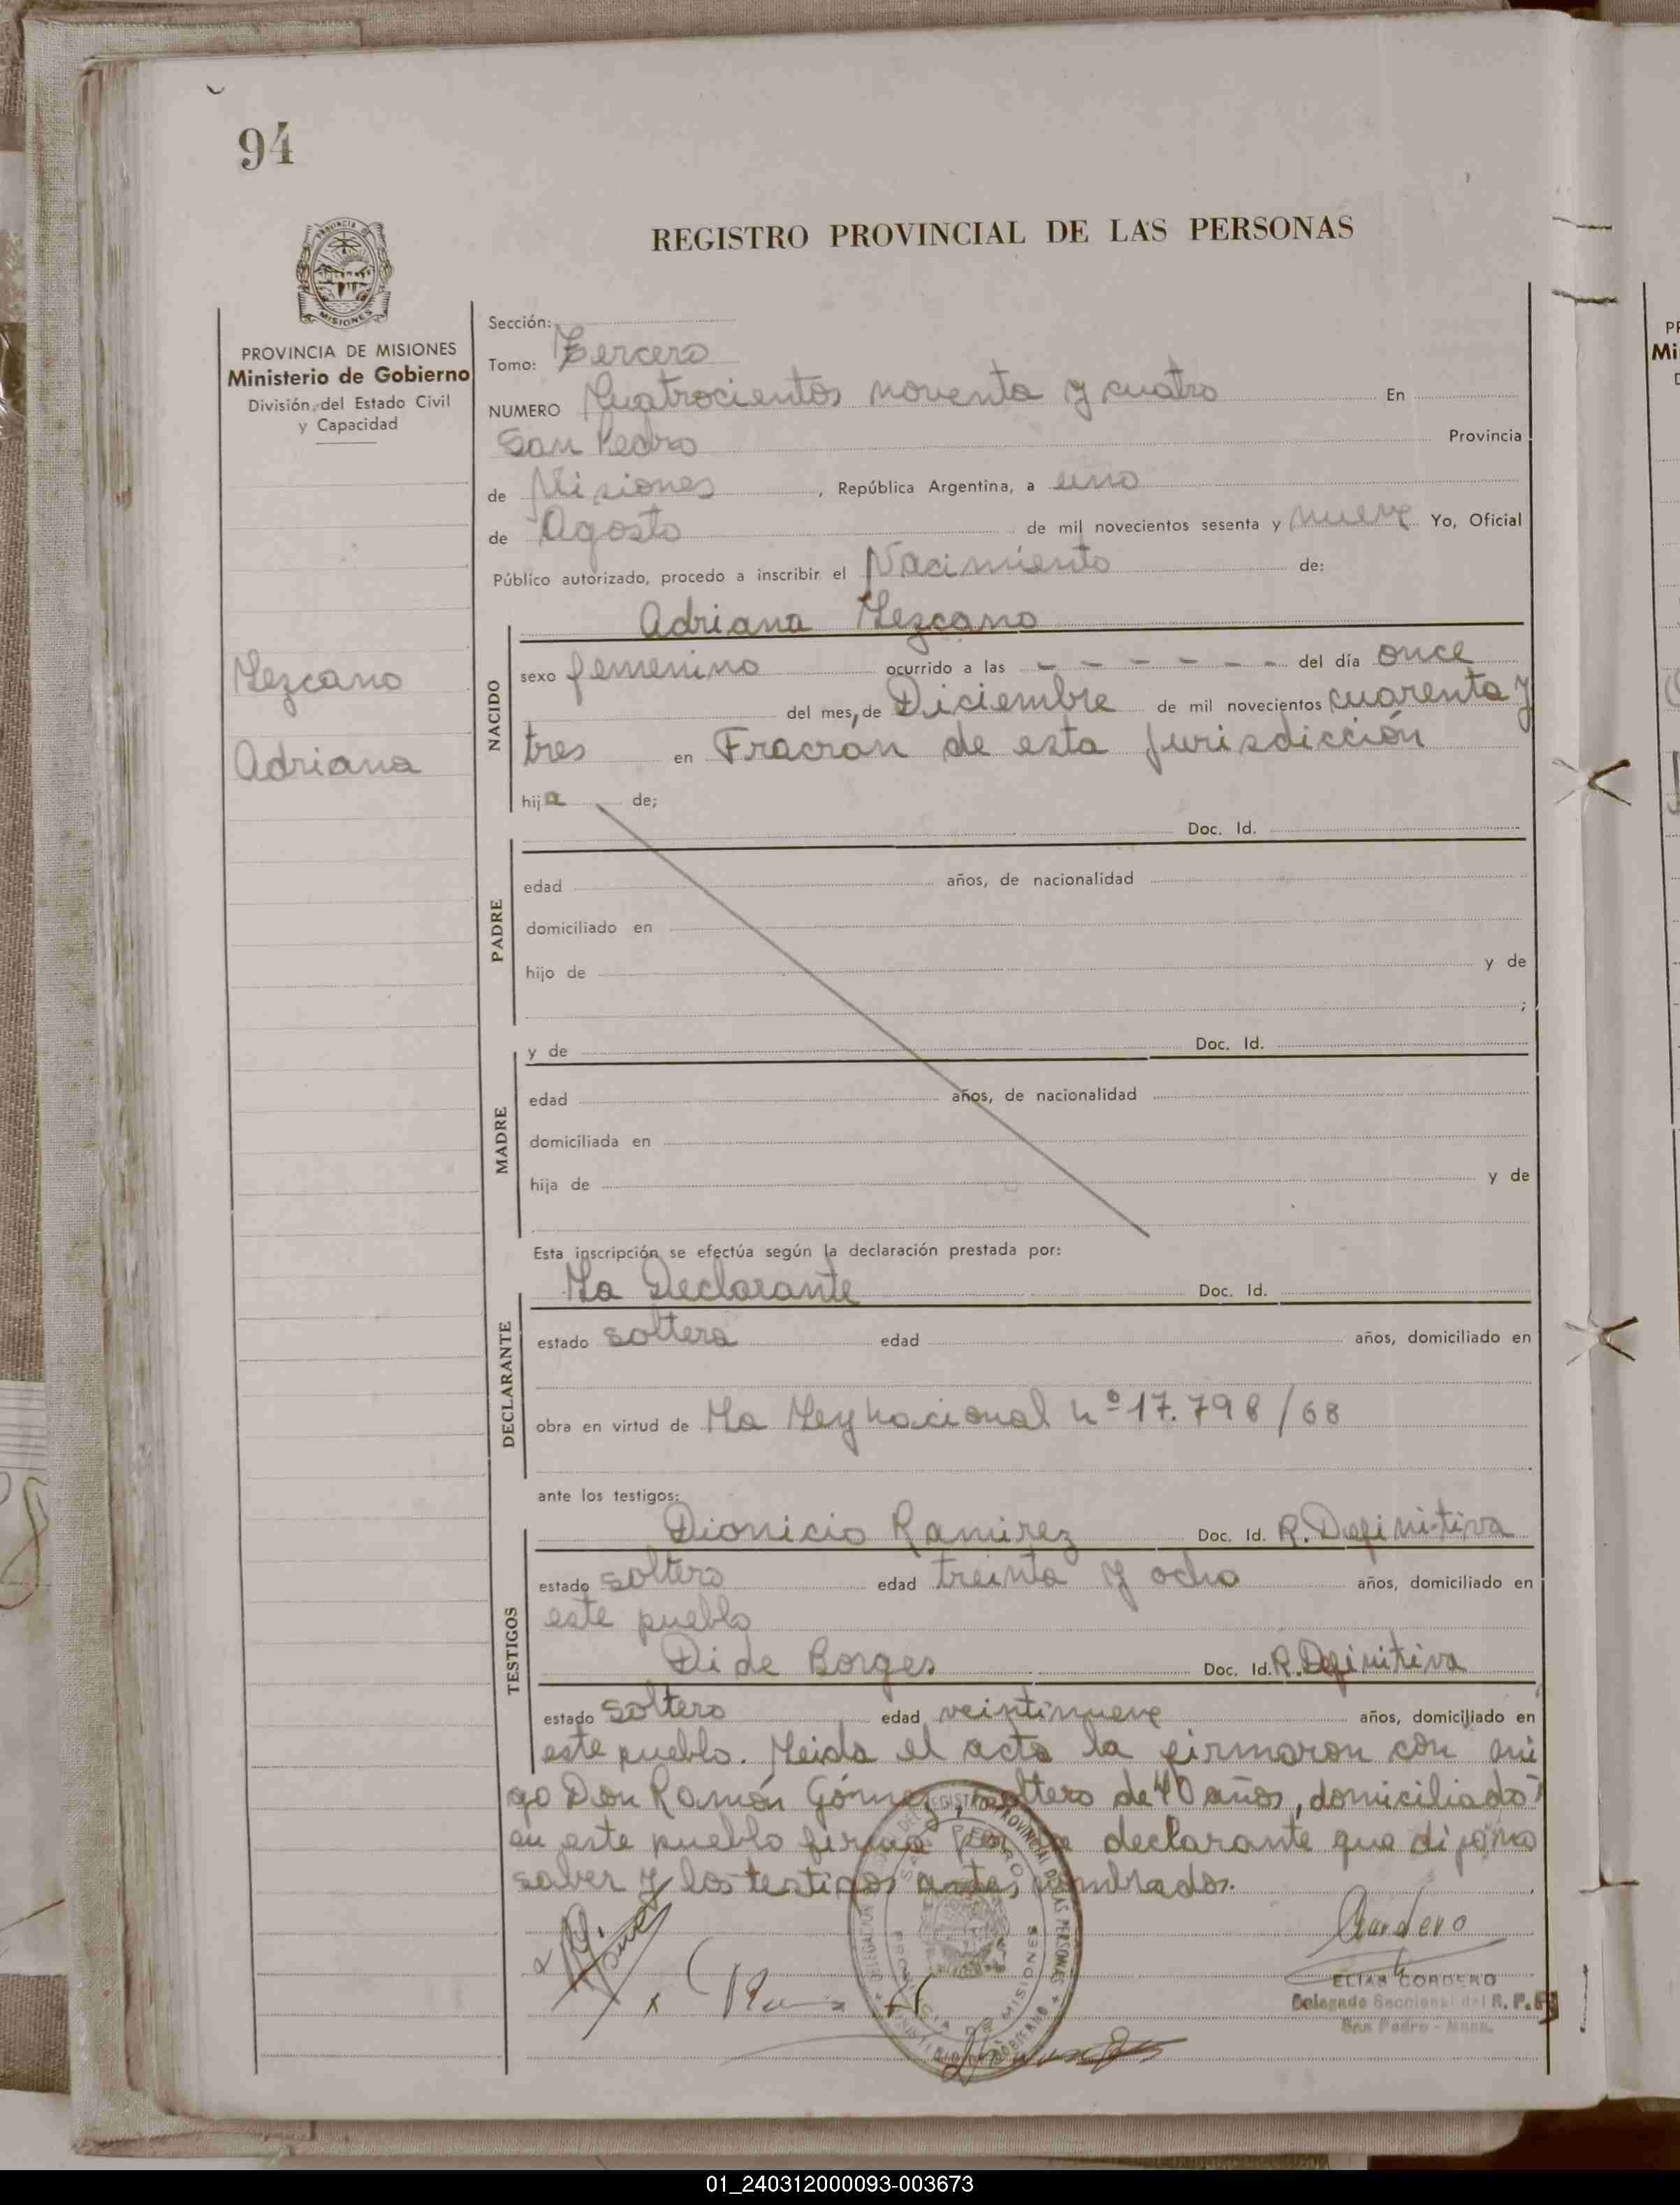 94
PROVINCIA DE
MISIONES
REGISTRO PROVINCIAL DE LAS PERSONAS
PROVINCIA DE MISIONES
Ministerio de Gobierno
División del Estado Civil
y Capacidad
Lezcano
Adriana
Sección:
Tomo: Tercero
NUMERO Cuatrocientos noventa y cuatro En
San Pedro Provincia
de Misiones, República Argentina, a uno
de Agosto de mil novecientos sesenta y nueve Yo, Oficial
Público autorizado, procedo a inscribir el Nacimiento de:
Adriana Lezcano
NACIDO
sexo femenino ocurrido a las - - - - - - - del día once
del mes, de Diciembre de mil novecientos cuarenta y
tres en Fracrán de esta Jurisdicción
hija de;
Doc. Id.
PADRE
edad años, de nacionalidad
domiciliado en
hijo de y de
;
MADRE
y de Doc. Id.
edad años, de nacionalidad
domiciliada en
hija de y de
Esta inscripción se efectúa según la declaración prestada por:
DECLARANTE
La Declarante Doc. Id.
estado soltera edad años, domiciliado en
obra en virtud de La Ley Nacional Nº 17.798/68
ante los testigos:
TESTIGOS
Dionicio Ramirez Doc. Id. R. Definitiva
estado soltero edad treinta y ocho años, domiciliado en
este pueblo
Di de Borges Doc. Id. R. Definitiva
estado soltero edad veintinueve años, domiciliado en
este pueblo. Leida el acta la firmaron con mi
go Don Ramón Gómez, soltero de 40 años, domiciliado
en este pueblo firma por la declarante que dijo no
saber y los testigos antes nombrados.
Cordero
ELIAS CORDERO
Delegado Seccional del R. P. P.
San Pedro - Mnes.
01_240312000093-003673